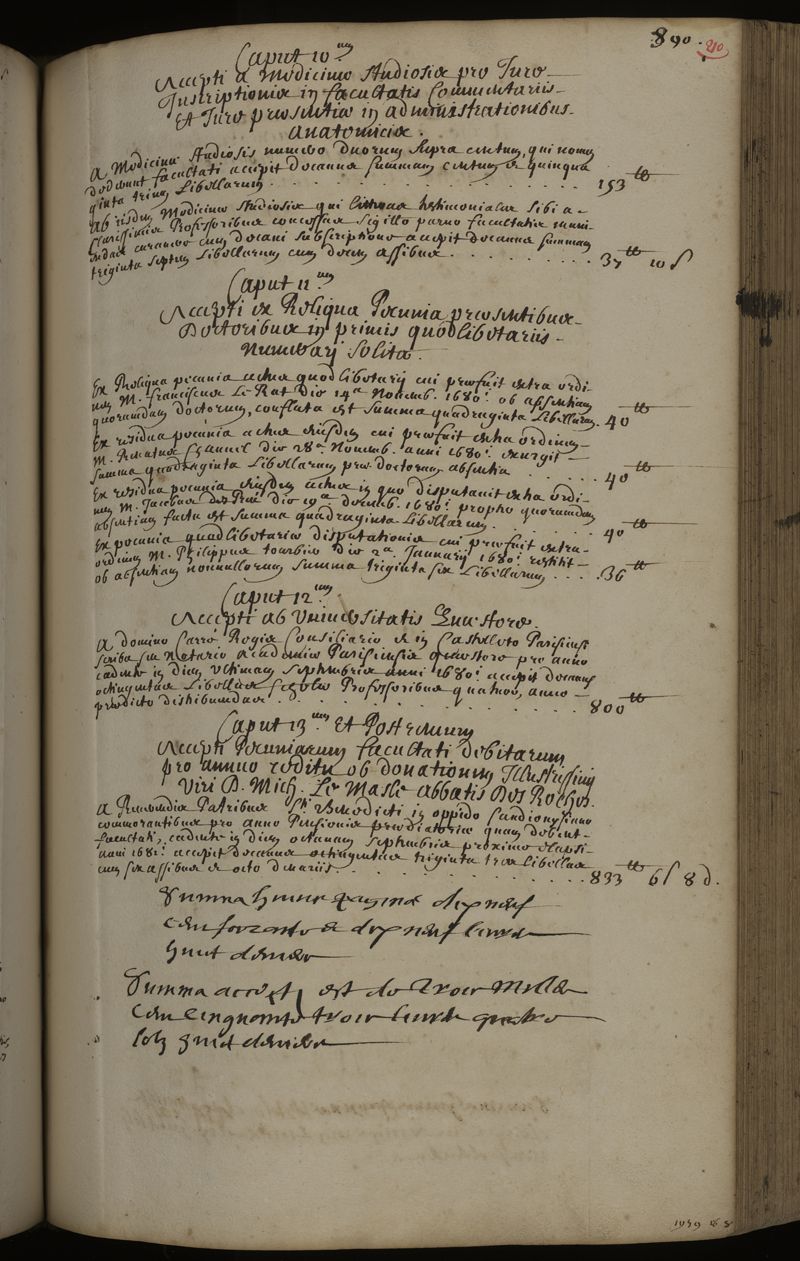 890.
210
Caput 10um
Accepti a Medicinæ studiosis pro Jure
Inscriptionis in facultatis Commentariis
Et Jure præsentiæ in administrationibus
anatomicis.
A Medicinæ studiosis numero duorum supra centum, qui nomen
dederunt facultati accepit decanus summam centum et quinqua
ginta trium Libellarum . . . 153 tt
Ab iisdem Medicinæ studiosis qui litteras testimoniales sibi a
Clarissimis Professoribus concessas sigillo parvo facultatis muni-
endas curarunt cum decani subscriptione accepit decanus summam
triginta septem Libellarum cum decem assibus . . . 37 tt 10 s
Caput 11um
Accepti ex Reliqua Pecunia præsentibus
Doctoribus in primis quodlibetariis
Numerari solita.
Ex Reliqua pecunia actus quodlibetarij cui præfuit extra ordi-
nem M. franciscus Le Rat die 14a Novemb. 1680. ob absentiam
quorumdam doctorum, conflata est summa quadraginta Libellarum. 40 tt
Ex residua pecunia actus ejusdem cui præfuit extra ordinem
M. Renatus die 28a Novemb. anni 1680. exurgit
summa quadraginta Libellarum pro doctorum absentia . . . 40 tt
Ex residua pecunia ejusdem actus in quo disputavit extra ordi-
nem M. Jacobus des Prez die 19a decemb. 1680. propter quorumdam
absentiam facta est summa quadraginta Libellarum . . . 40 tt
Ex pecunia quodlibetariæ disputationis cui præfuit extra
ordinem M. Philippus die 2a Januarij 1680. restitit
ob absentiam nonnullorum summa triginta sex Libellarum . . . 36 tt
Caput 12um.
Accepti ab Universitatis Quæstore.
A domino Carré Regis Consiliario et in Castelleto Parisiensi
scriba seu Notario academiæ Parisiensis quæstore pro anno
cadente in diem ultimam septembris anni 1680. accepit decanus
octingentas Libellas scholæ Professoribus quatuor, anno
prædicto distribuendas . . . 800 tt
Caput 13um Et Postremum
Accepti Pecuniarum facultati debitarum
pro annuo reditu ob donationem Illustrissimi
Viri D. Mich. Le Masle abbatis Des Roches.
A Reverendis Patribus Sti Benedicti in oppido sandionysiano
commorantibus pro anno Pensionis prædiatoriæ quam debent
facultati, cadente in diem octavam septembris proximè elapsi
anni 1681. accepit decanus octingentas triginta tres libellas
cum sex assibus et octo denariis . . . 833 tt 6 s 8 d.
Summa hujus paginæ dix neuf
cens soixante et dix neuf livres
huit deniers
Summa accepti est de trois mille
cens cinquante trois livres quatre
solz huit deniers